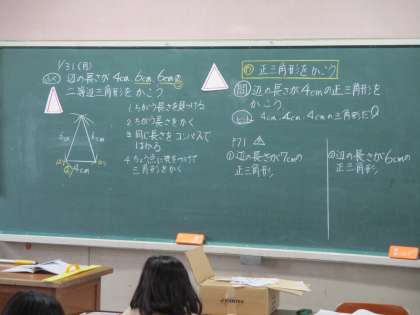 1/31(月)
辺の長さが4cm、6cm、6cmの
二等辺三角形をかこう
1.ちがう長さを見つける
2.ちがう長さをかく
3.同じ長さをコンパスで
はかる
三角形をかく
6cm
6cm
4cm
正三角形をかこう
問 辺の長さが4cmの正三角形を
かこう
4cm、4cm、4cmの三角形だ
P71
①辺の長さが7cmの
正三角形
②辺の長さが6cmの
正三角形